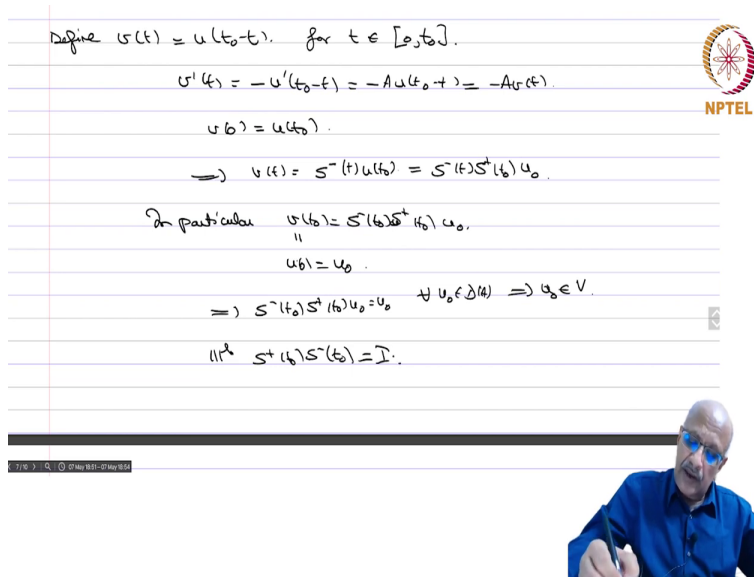 Define v(t) = u(t₀-t). for t ∈ [0,t₀].
v'(t) = -u'(t₀-t) = -Au(t₀-t) = -Av(t).
v(0) = u(t₀).
⇒ v(t) = S⁻(t)u(t₀) = S⁻(t)S⁺(t₀)u₀.
In particular v(t₀) = S⁻(t₀)S⁺(t₀)u₀.
||
u(0) = u₀.
⇒ S⁻(t₀)S⁺(t₀)u₀ = u₀ ∀ u₀ ∈ D(A) ⇒ u₀ ∈ V.
|||ly S⁺(t₀)S⁻(t₀) = I.
NPTEL
7/10 07 May 18:51-07 May 18:54